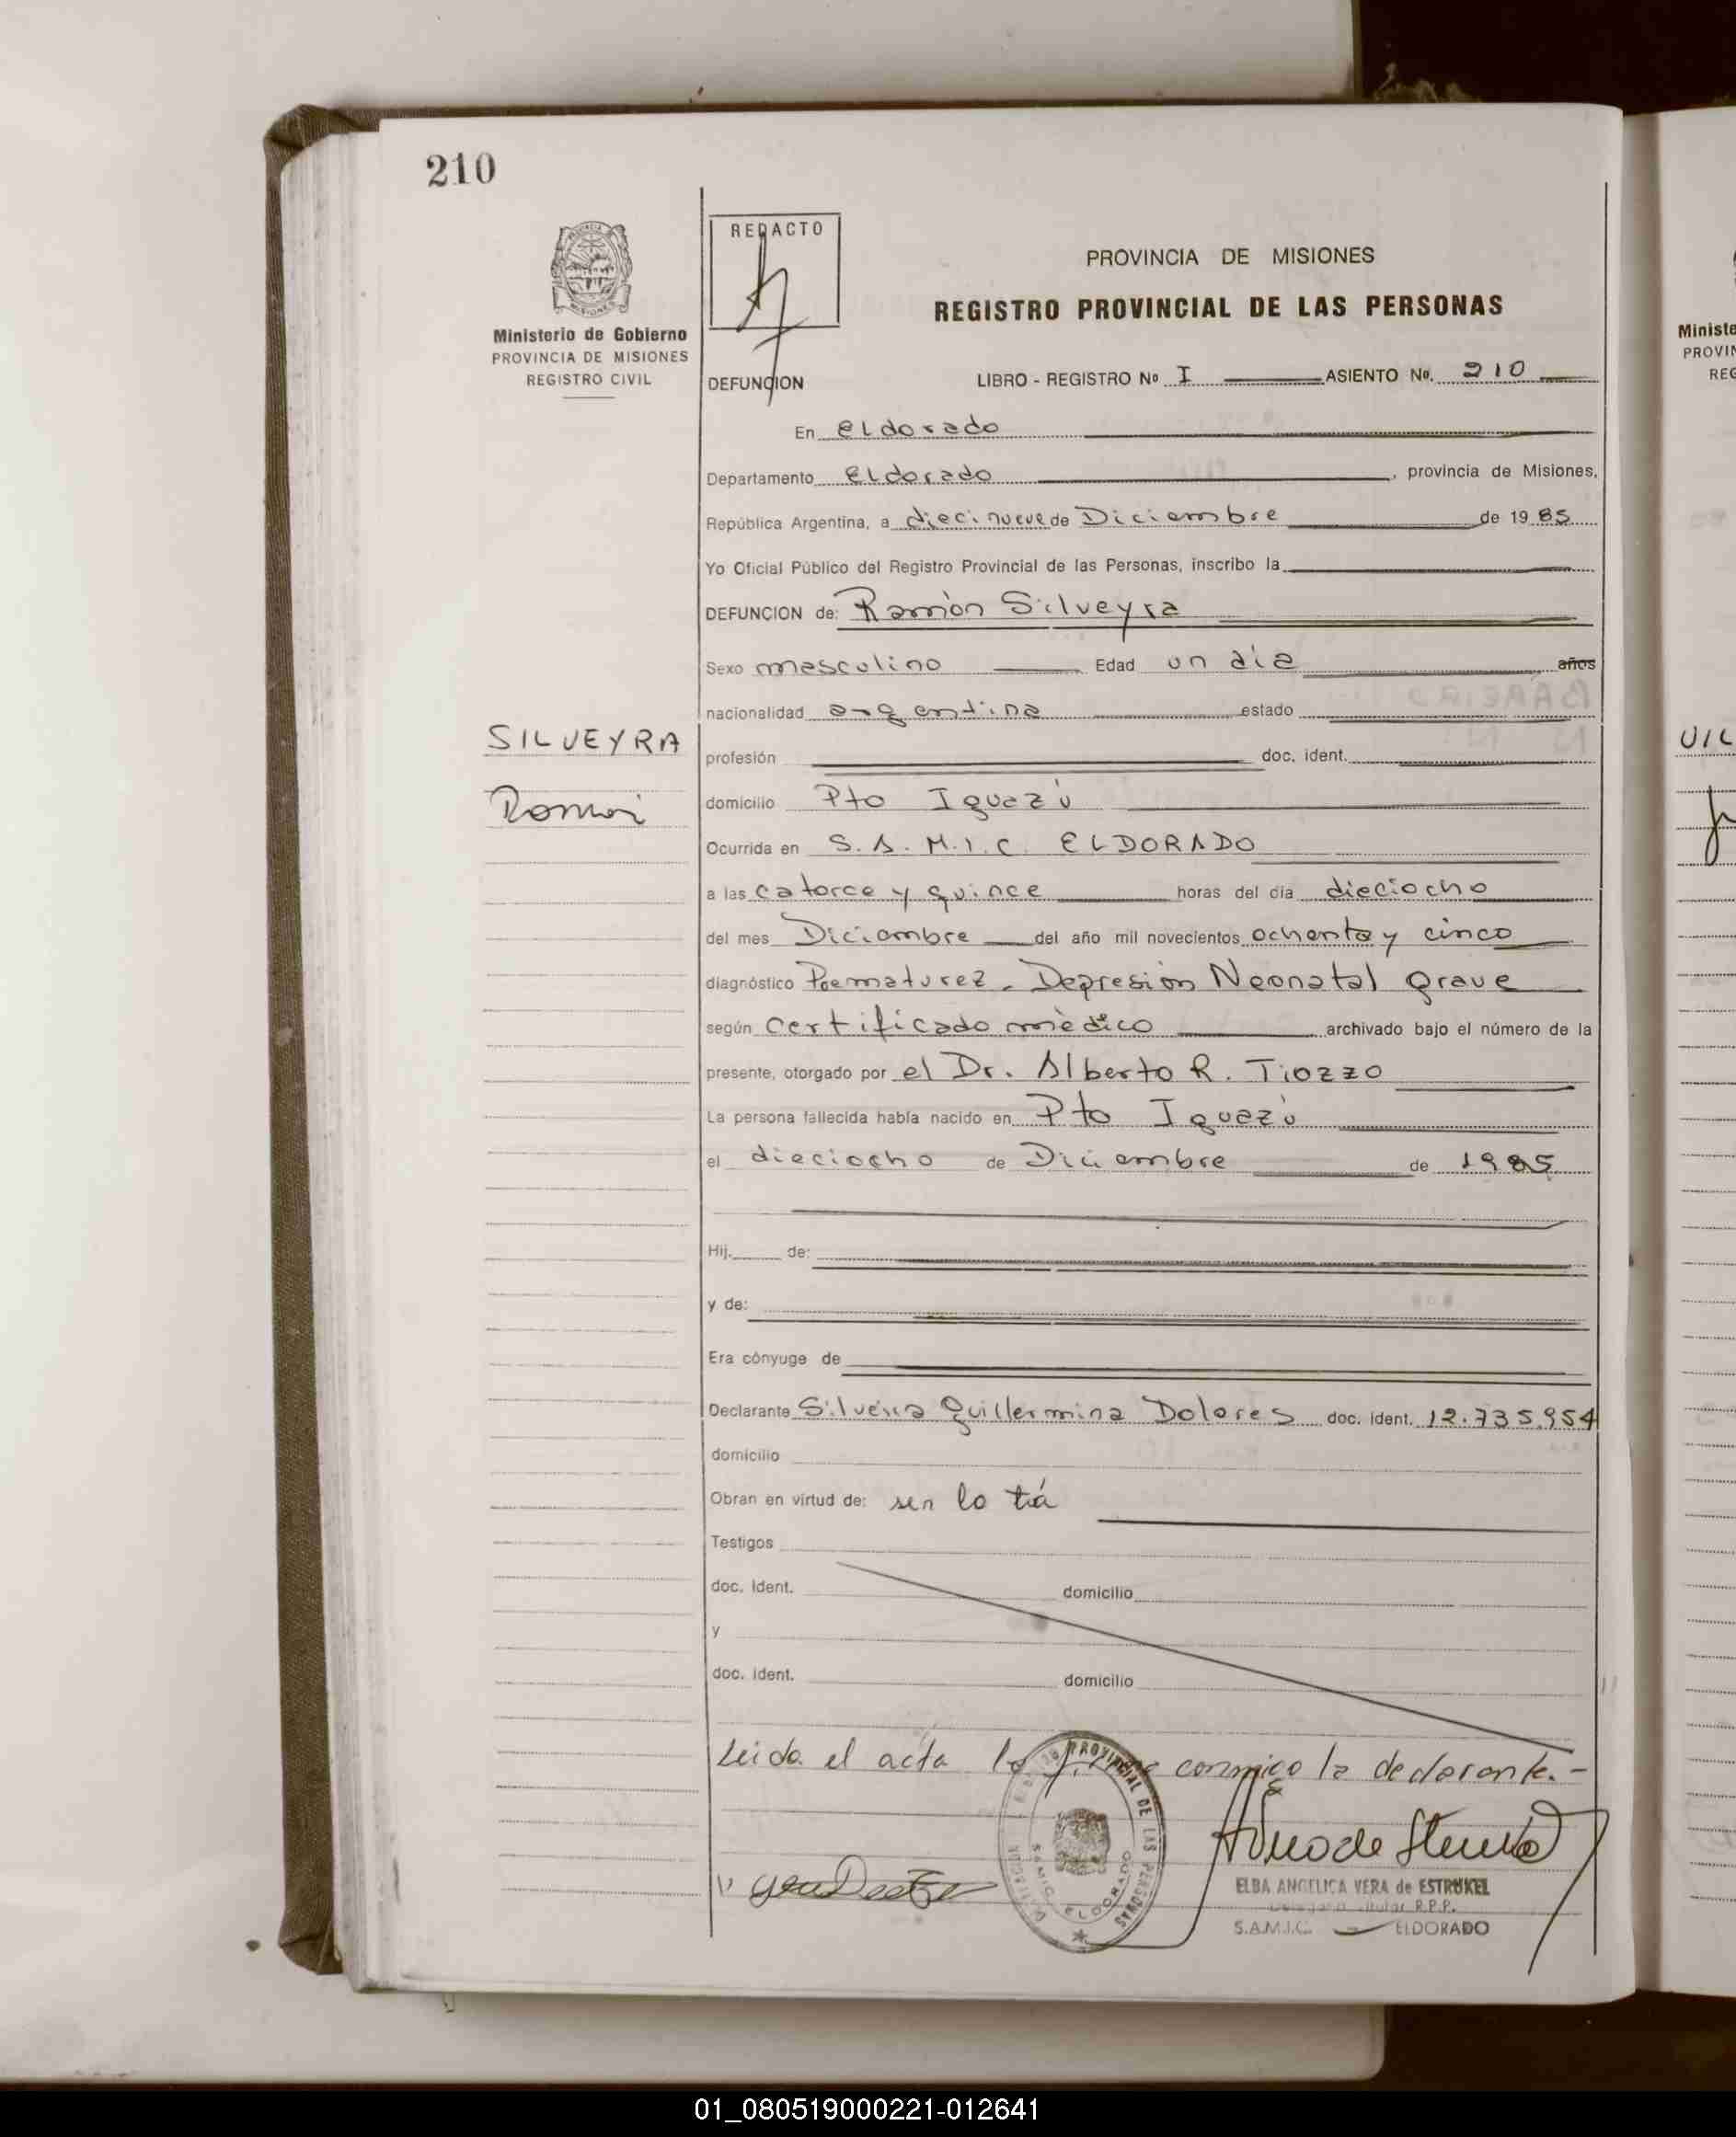 210
REDACTO
PROVINCIA DE MISIONES
REGISTRO PROVINCIAL DE LAS PERSONAS
Ministerio de Gobierno
PROVINCIA DE MISIONES
REGISTRO CIVIL
DEFUNCION LIBRO - REGISTRO Nº I ASIENTO Nº. 210
En Eldorado
Departamento Eldorado, provincia de Misiones,
República Argentina, a diecinueve de Diciembre de 1985
Yo Oficial Público del Registro Provincial de las Personas, inscribo la
DEFUNCION de: Ramòn Silveyra
Sexo masculino Edad un dìa años
nacionalidad argentina estado
SILVEYRA
profesión doc. ident.
Ramòn
domicilio Pto Iguazù
Ocurrida en S.A.M.I.C. ELDORADO
a las catorce y quince horas del día dieciocho
del mes Diciembre del año mil novecientos ochenta y cinco
diagnóstico Prematurez. Depresiòn Neonatal grave
según certificado mèdico archivado bajo el número de la
presente, otorgado por el Dr. Alberto R. Tiozzo
La persona fallecida había nacido en Pto Iguazù
el dieciocho de Diciembre de 1985
Hij. de:
y de:
Era cónyuge de
Declarante Silveira Guillermina Dolores doc. ident. 12.735.954
domicilio
Obran en virtud de: ser la tía
Testigos
doc. ident. domicilio
y
doc. ident. domicilio
Leida el acta la firma conmigo la declarante.-
PROVINCIAL DE LAS PERSONAS
ELDORADO
ELBA ANGELICA VERA de ESTRUKEL
R.P.P.
S.A.M.I.C. - ELDORADO
Ministe
PROVIN
REG
VIL
01_080519000221-012641